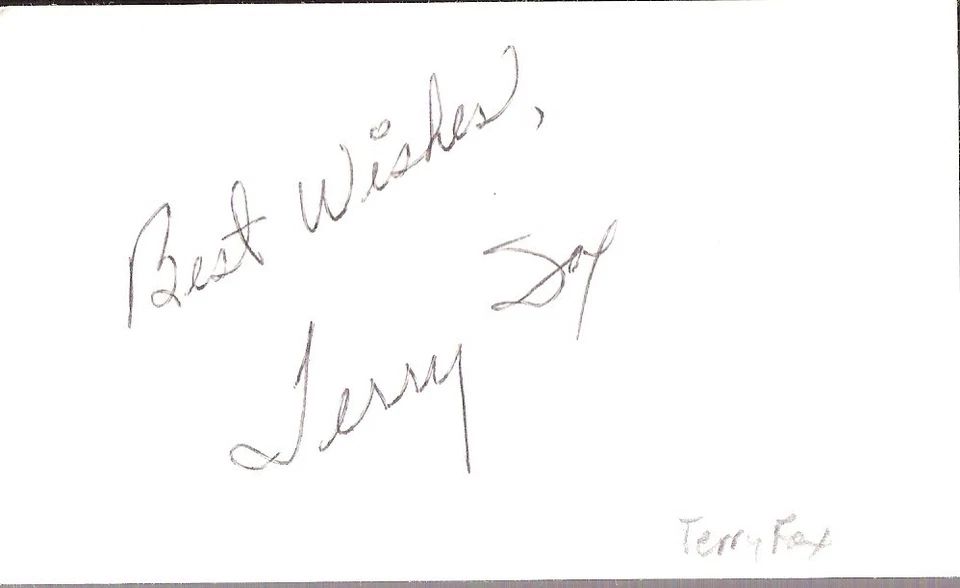 Best Wishes,
Terry Fox
Terry Fox